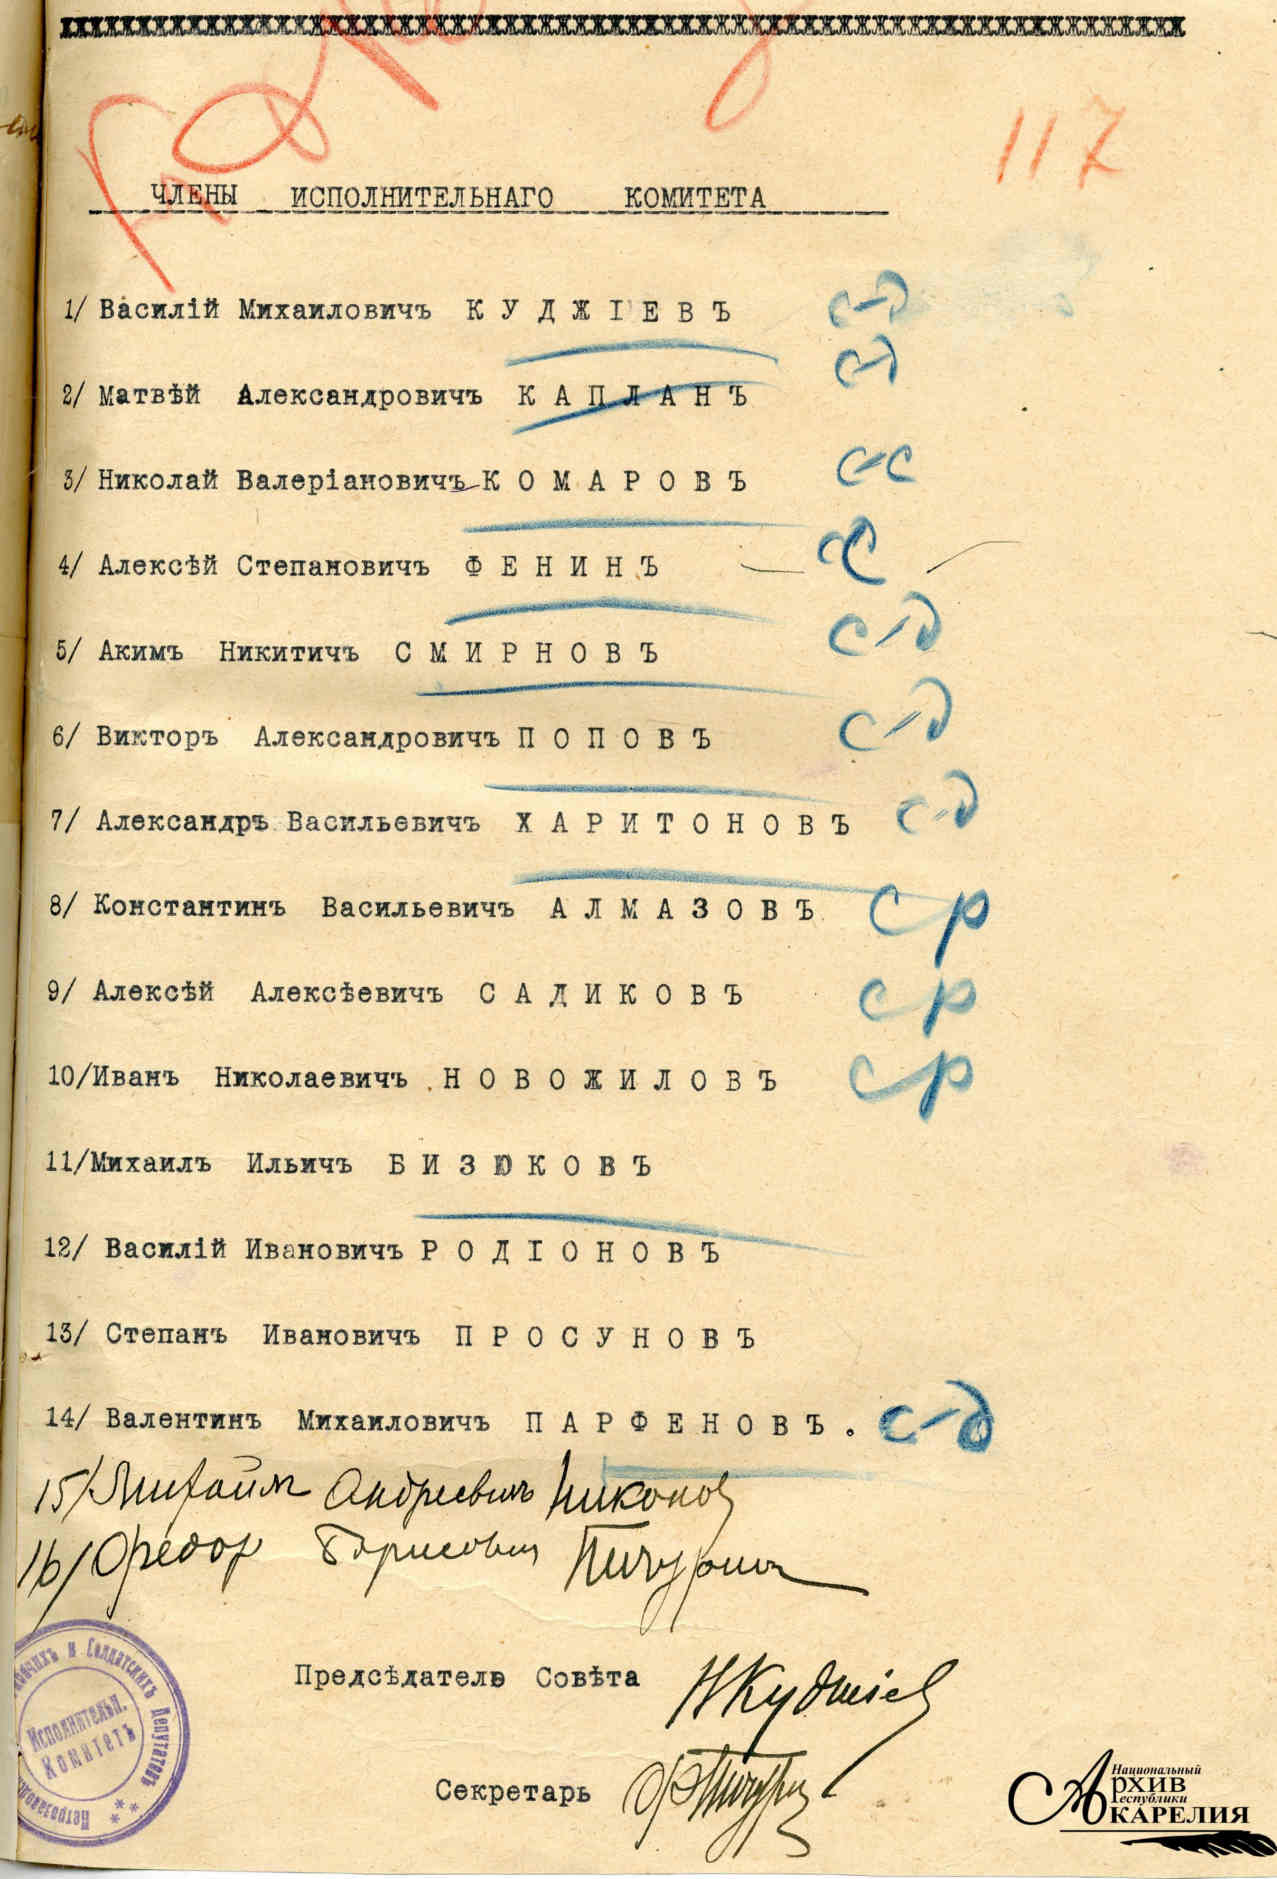 117
ЧЛЕНЫ ИСПОЛНИТЕЛЬНАГО КОМИТЕТА
1/ Василій Михаиловичъ КУДЖІЕВЪ с-д
2/ Матвѣй Александровичъ КАПЛАНЪ с-д
3/ Николай Валеріановичъ КОМАРОВЪ с-с
4/ Алексѣй Степановичъ ФЕНИНЪ
5/ Акимъ Никитичъ СМИРНОВЪ с-д
6/ Викторъ Александровичъ ПОПОВЪ с-д
7/ Александръ Васильевичъ ХАРИТОНОВЪ с-д
8/ Константинъ Васильевичъ АЛМАЗОВЪ с р
9/ Алексѣй Алексѣевичъ САДИКОВЪ с р
10/Иванъ Николаевичъ НОВОЖИЛОВЪ с р
11/Михаилъ Ильичъ БИЗЮКОВЪ
12/ Василій Ивановичъ РОДІОНОВЪ
13/ Степанъ Ивановичъ ПРОСУНОВЪ
14/ Валентинъ Михаиловичъ ПАРФЕНОВЪ. с-д
15/ Михаилъ Андреевичъ Никонов
16/ Федор Борисович Пичурин
Рабочихъ и Солдатскихъ Депутатовъ
Исполнительн.
Комитетъ
Предсѣдатель Совѣта
Секретарь
Национальный
Архив
Республики
Карелия